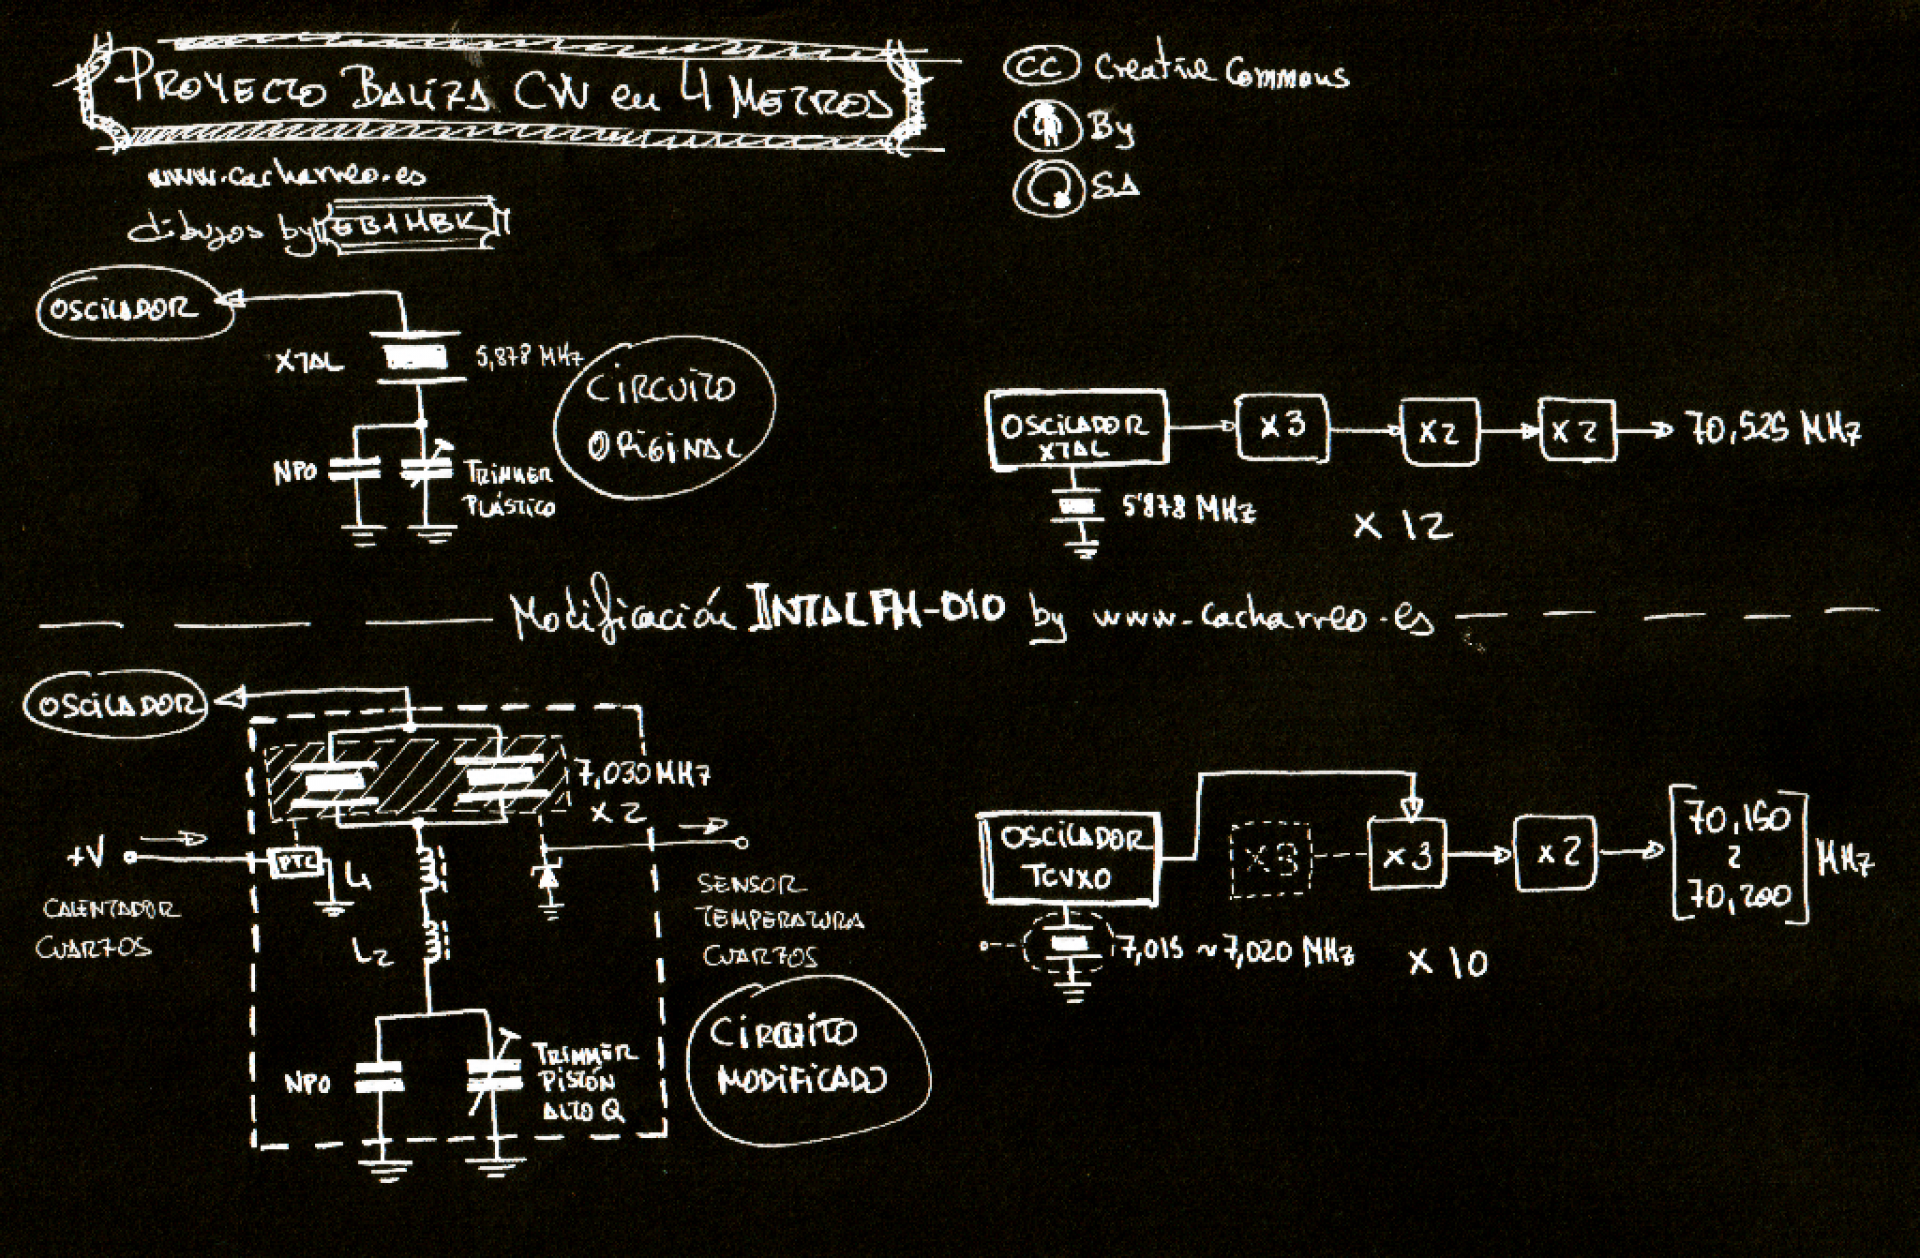 PROYECTO BALIZA CW en 4 METROS
www.cacharreo.es
dibujos by EB1HBK
CC Creative Commons
By
SA
OSCILADOR
XTAL
5,878 MHz
CIRCUITO
ORIGINAL
NPO
TRIMMER
PLÁSTICO
OSCILADOR
XTAL
X3
X2
X2
70,525 MHz
5'878 MHz
X 12
Modificación INTAL FM-010 by www.cacharreo.es
OSCILADOR
7,030 MHz
X 2
+V
PTC
L1
CALENTADOR
CUARZOS
L2
SENSOR
TEMPERATURA
CUARZOS
NPO
TRIMMER
PISTÓN
ALTO Q
CIRCUITO
MODIFICADO
OSCILADOR
TCVXO
X3
X3
X2
70,150
2
70,200
MHz
7,015 ~ 7,020 MHz
X 10